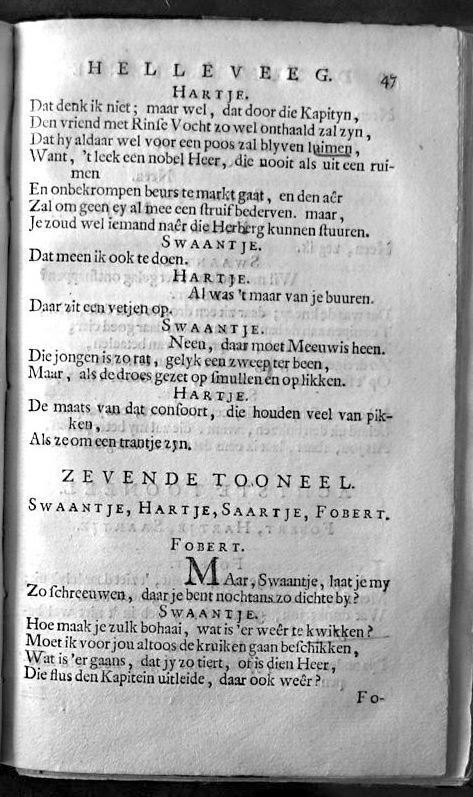 HELLEVEEG. 47
HARTJE.
Dat denk ik niet; maar wel, dat door die Kapityn,
Den vriend met Rinse Vocht zo wel onthaald zal zyn,
Dat hy aldaar wel voor een poos zal blyven luimen,
Want, 't leek een nobel Heer, die nooit als uit een rui-
men
En onbekrompen beurs te markt gaat, en den aêr
Zal om geen ey al mee een struif bederven. maar,
Je zoud wel iemand naêr die Herberg kunnen stuuren.
SWAANTJE.
Dat meen ik ook te doen.
HARTJE.
Al was 't maar van je buuren.
Daar zit een vetjen op.
SWAANTJE.
Neen, daar moet Meeuwis heen.
Die jongen is zo rat, gelyk een zweep ter been,
Maar, als de droes gezet op smullen en op likken.
HARTJE.
De maats van dat consoort, die houden veel van pik-
ken,
Als ze om een trantje zyn.
ZEVENDE TOONEEL.
SWAANTJE, HARTJE, SAARTJE, FOBERT.
FOBERT.
MAar, Swaantje, laat je my
Zo schreeuwen, daar je bent nochtans zo dichte by?
SWAANTJE.
Hoe maak je zulk bohaai, wat is 'er weêr te kwikken?
Moet ik voor jou altoos de kruiken gaan beschikken,
Wat is 'er gaans, dat jy zo tiert, of is dien Heer,
Die flus den Kapitein uitleide, daar ook weêr?
Fo-